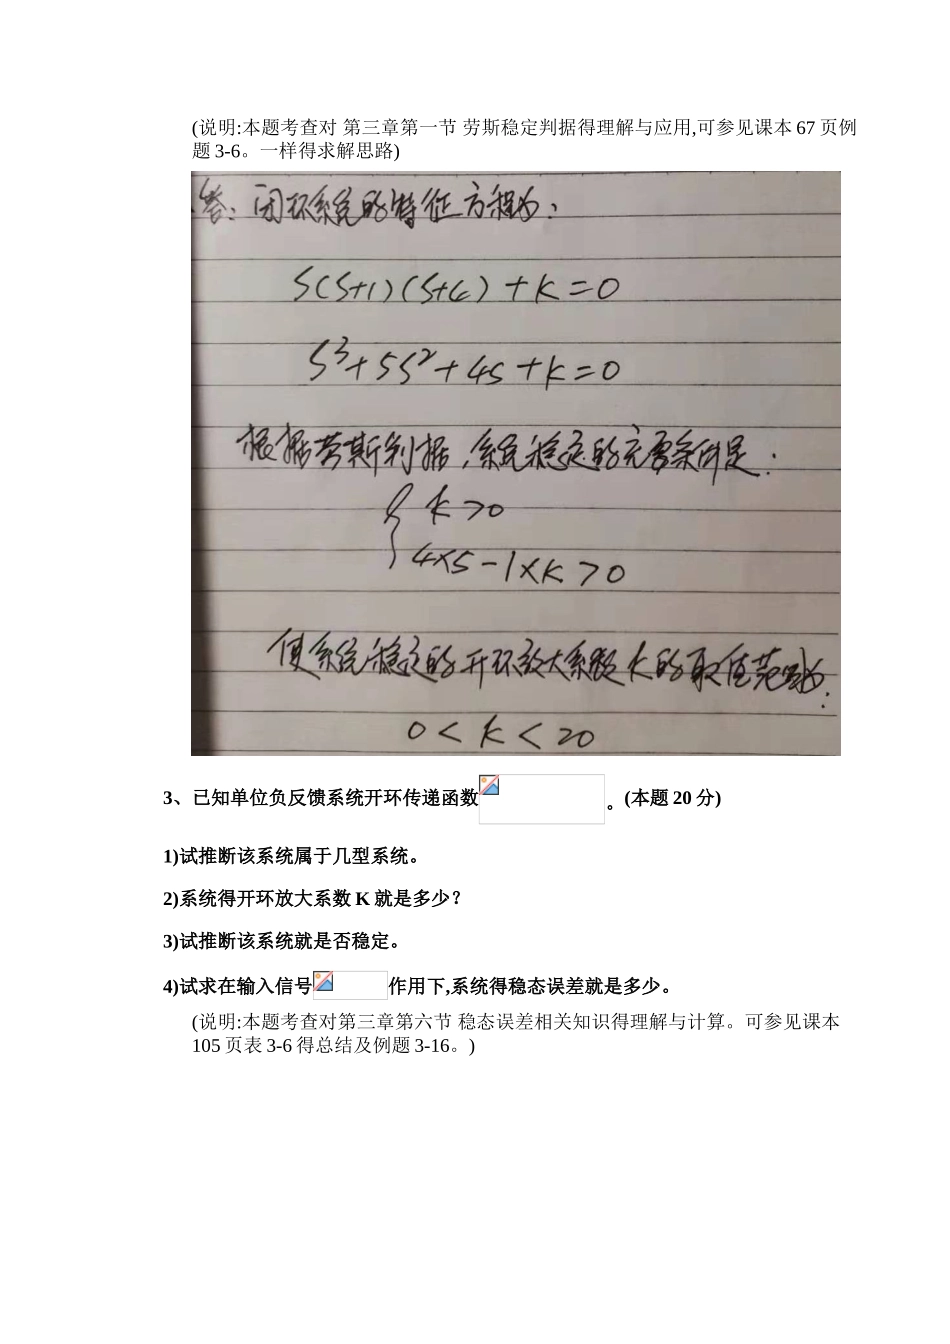 (说明:本题考查对 第三章第一节 劳斯稳定判据得理解与应用,可参见课本 67 页例
题 3-6。一样得求解思路)
答：闭环系统的特征方程为：
S(S+1)(S+4)+K=0
S³+5S²+4S+K=0
根据劳斯判据，系统稳定的充要条件是：
{ K>0
4×5-1×K>0
使系统稳定的开环放大系数K的取值范围为：
0<K<20
3、已知单位负反馈系统开环传递函数 。(本题 20 分)
1)试推断该系统属于几型系统。
2)系统得开环放大系数 K 就是多少?
3)试推断该系统就是否稳定。
4)试求在输入信号 作用下,系统得稳态误差就是多少。
(说明:本题考查对第三章第六节 稳态误差相关知识得理解与计算。可参见课本
105 页表 3-6 得总结及例题 3-16。)